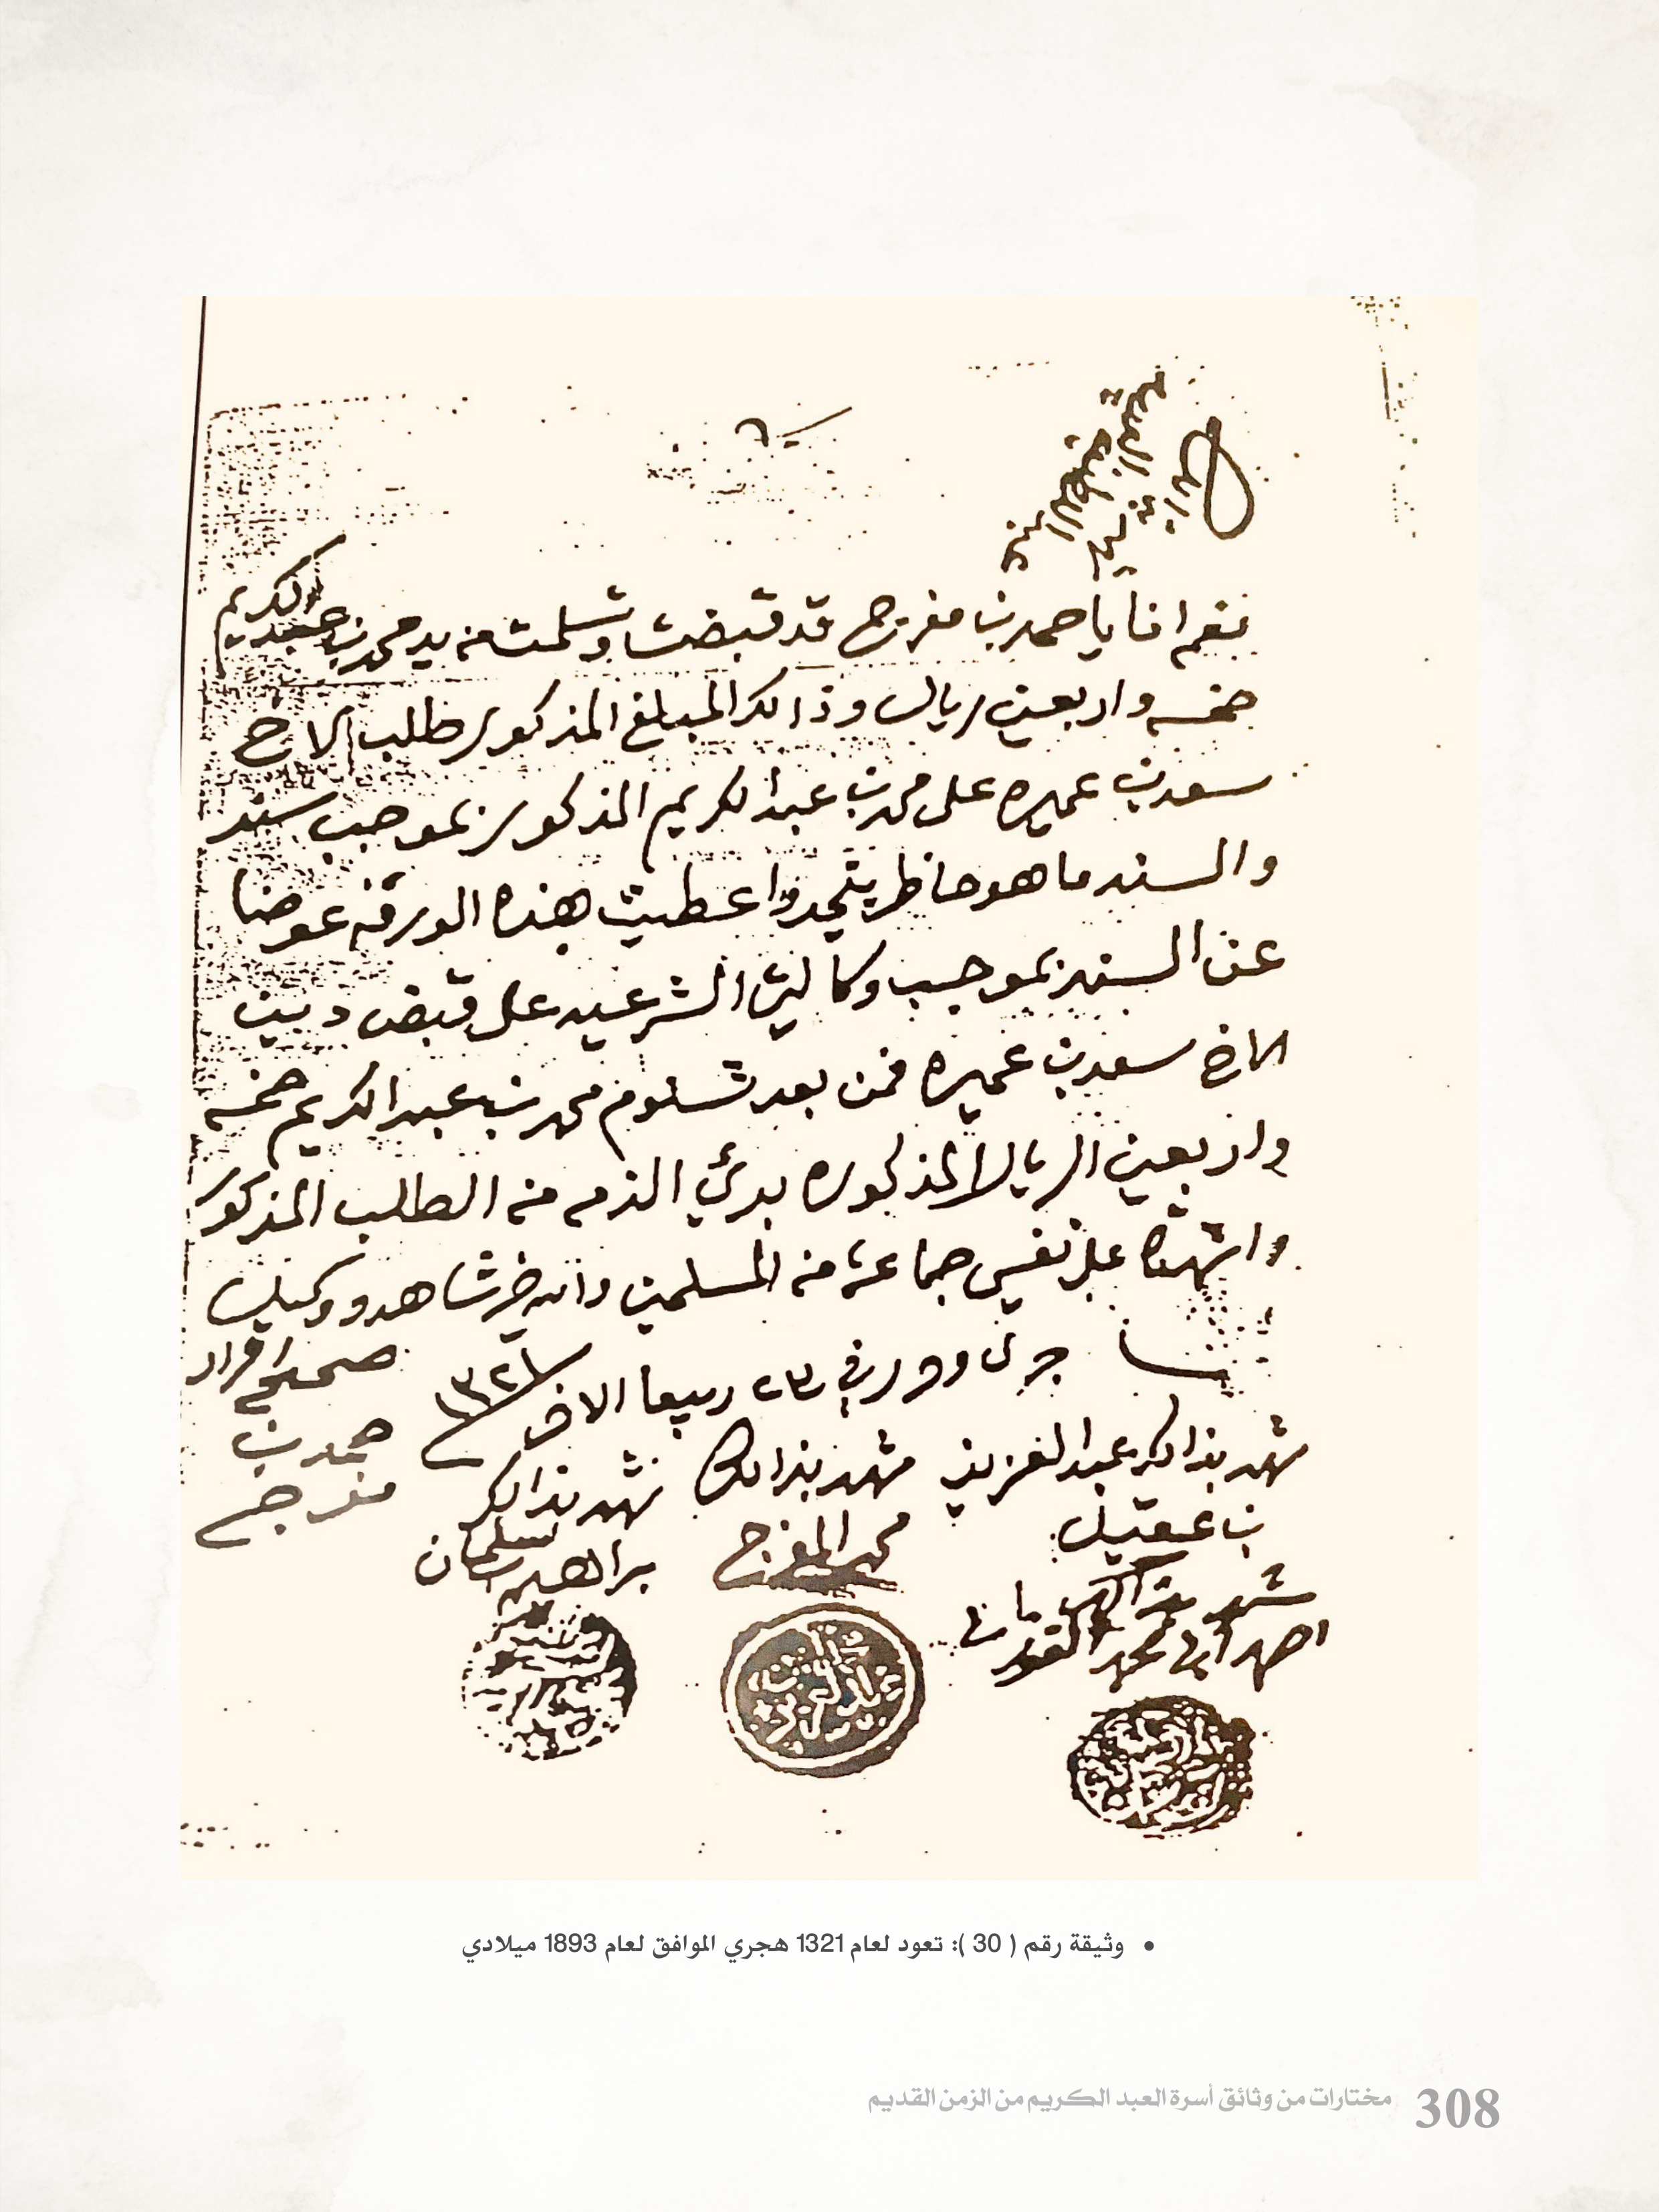 نعم انا يا حمد بن مفرج قد قبضت وتسلمت من يد محمد بن عبد الكريم
خمسه واربعين ريال وذالك المبلغ المذكور طلب الاخ
سعد بن عميره على محمد بن عبد الكريم المذكور بموجب سند
والسند ما هو حاظر واعطيت هذه الورقه عوضا
عن السند بموجب وكالتي الشرعيه على قبض دين
الاخ سعد بن عميره فمن بعد تسلوم محمد بن عبد الكريم خمسه
واربعين الريال المذكوره بريّ الذمه من الطلب المذكور
واشهدة على نفسي جماعة من المسلمين والله خير شاهد ووكيل
جرى وحرر في ٢٣ ربيعا الاخر ١٣٢١
صحيح اقرار
حمد بن
مفرج
شهد بذالك عبد العزيز
بن عقيل
شهد بذالك
محمد المفرج
شهد بذالك
براهيم سلمان
شهد بذالك
احمد ابن محمد
• وثيقة رقم ( 30 ): تعود لعام 1321 هجري الموافق لعام 1893 ميلادي
308 مختارات من وثائق أسرة العبد الكريم من الزمن القديم